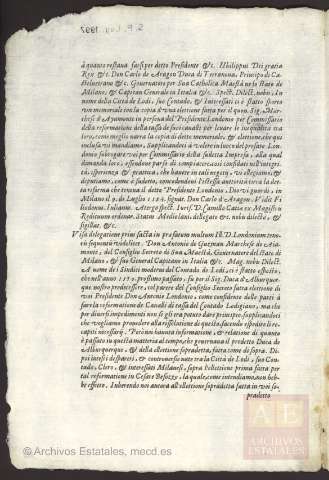 à quanto restaua farsi per detto Presidente &c. Philippus Dei gratia
Rex &c. Don Carlo de Aragon Duca di Terranoua, Principo di Ca-
steluetrano &c. Gouernatore per Sua Catholica Maestà nello stato di
Milano, & Capitan Generale in Italia &c. Spect. Dilect. nobis, In
nome della Città de Lodi, suo Contado, & Interessati ci è stato sporto
vn memoriale con copia d'vna elettione fatta per il quon. Sig. Mar-
chese d'Ayamonte in persona del Presidente Londonio per Commissario
della reformatione della tassa de suoi cauali per leuare le inequalità tra
loro, come meglio narra la copia di detto memoriale, & elettione, che qui
inclusa vi mandiamo, Supplicandoci à volere in loco del presente Lon-
donio subrogare voi per Commissario della sudetta impresa, alla qual
domanda loro, essendone parse di compiacere, noi confidati nell'integri-
tà, esperienza & pratica, che haueti in tali negotij, voi eleggiamo, &
deputiamo, come è sudetto, concedendoui l'istessa autorità circa la det-
ta riforma che teneua il detto Presidente Londonio, Dio vi guardi, in
Milano il 9. de Luglio 1584. signat. Don Carlo d'Aragon. Vidit Fi-
liodonus. Iulianus. Atergo spect. Iuris. D. Camillo Cattio ex Magistris
Redituum ordinar. Status Mediolani, delegato &c. nobis dilecto, &
sigillat. &c.
Visa delegatione prius facta in præfatum multum Ill. D. Londonium teno-
ris sequentis videlicet. Don Antonio de Guzman Marchese de Aia-
monte, del Consiglio Secreto di Sua Maestà, Gouernatore del stato di
Milano, & suo General Capitanio in Italia &c. Mag. nobis Dilect.
A nome de i Sindici moderni del Contado de Lodi, ci è stato esposto,
che nell'anno 1572. prossimo passato, fu per il Sig. Duca d'Alburquer-
que nostro predecessore, col parere del Consiglio Secreto fatta elettione di
voi Presidente Don Antonio Londonio, come confidente delle parti à
far la reformatione de Caualli di tassa del Contado Lodegiano, ma che
per diuersi impedimenti non se gli era potuto dare principio, supplicandoci
che vogliamo prouedere alla essecutione di questa facenda essendone li re-
capiti necessarij. Però noi hauuta informatione, & relatione di quanto
è passato in questa matteria al tempo, che gouernaua il predetto Duca de
Alburquerque, & della elettione sopradetta, fatta come di sopra. Di
poi intesi i dispareri, & controuersie nate tra la Città de Lodi, suo Con-
tado, Clero, & interessati Milanesi, sopra l'elettione prima fatta per
tal reformatione in Cesare Besozzo, la quale, come intendiamo, non heb-
be effetto. Inherendo noi ancora all'elettione sopradetta fatta in voi so-
pradetto
ARCHIVOS
ESTATALES
© Archivos Estatales, mecd.es